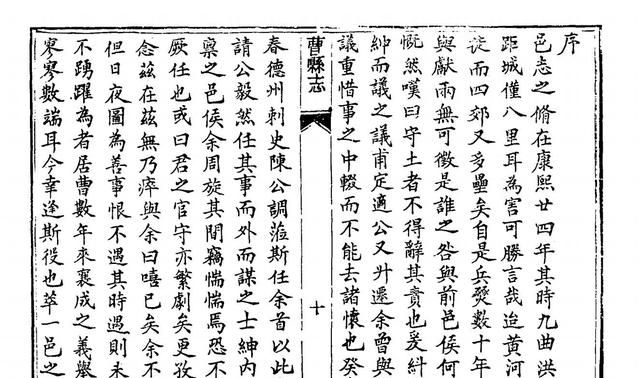 序
邑志之脩在康熙廿四年其時九曲洪
距城僅八里耳為害可勝言哉迨黃河
徙而四郊又多壘矣自是兵燹數十年
與獻兩無可徵是誰之咎與前邑侯何
慨然嘆曰守土者不得辭其責也爰糾
紳而議之議甫定適公又升遷余曾與
議重惜事之中輟而不能去諸懷也癸
曹縣志
十
春德州刺史陳公調蒞斯任余首以此
請公毅然任其事而外而謀之士紳內
稟之邑侯余周旋其間竊惴惴焉恐不
厥任也或曰君之官守亦繁劇矣更孜
念茲在茲無乃瘁與余曰嘻已矣余不
但日夜圖為善事恨不遇其時遇則未
不踴躍為者居曹數年來襄成之義舉
寥寥數端耳今幸逢斯役也萃一邑之